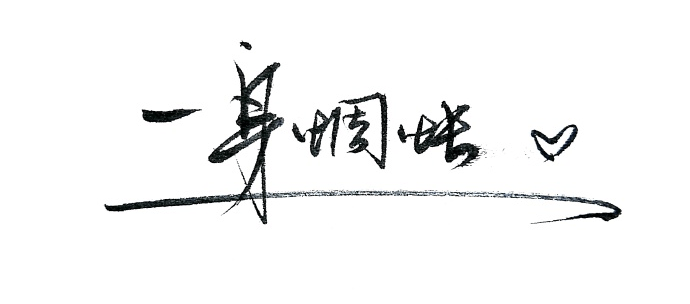 一身惆怅